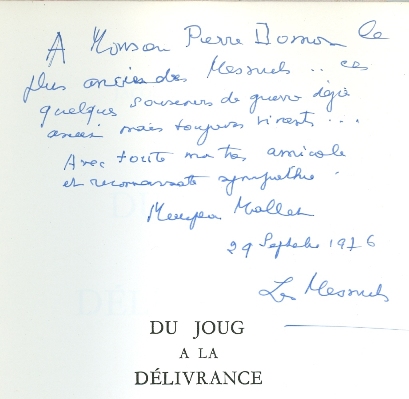 A Monsieur Pierre le
plus ancien des Mesnuls .. ces
quelques souvenirs de guerre déjà
anciens mais toujours vivants ...
Avec toute ma très amicale
et reconnaissante sympathie.
Mallet
29 Septembre 1976
Les Mesnuls
DU JOUG
A LA
DÉLIVRANCE